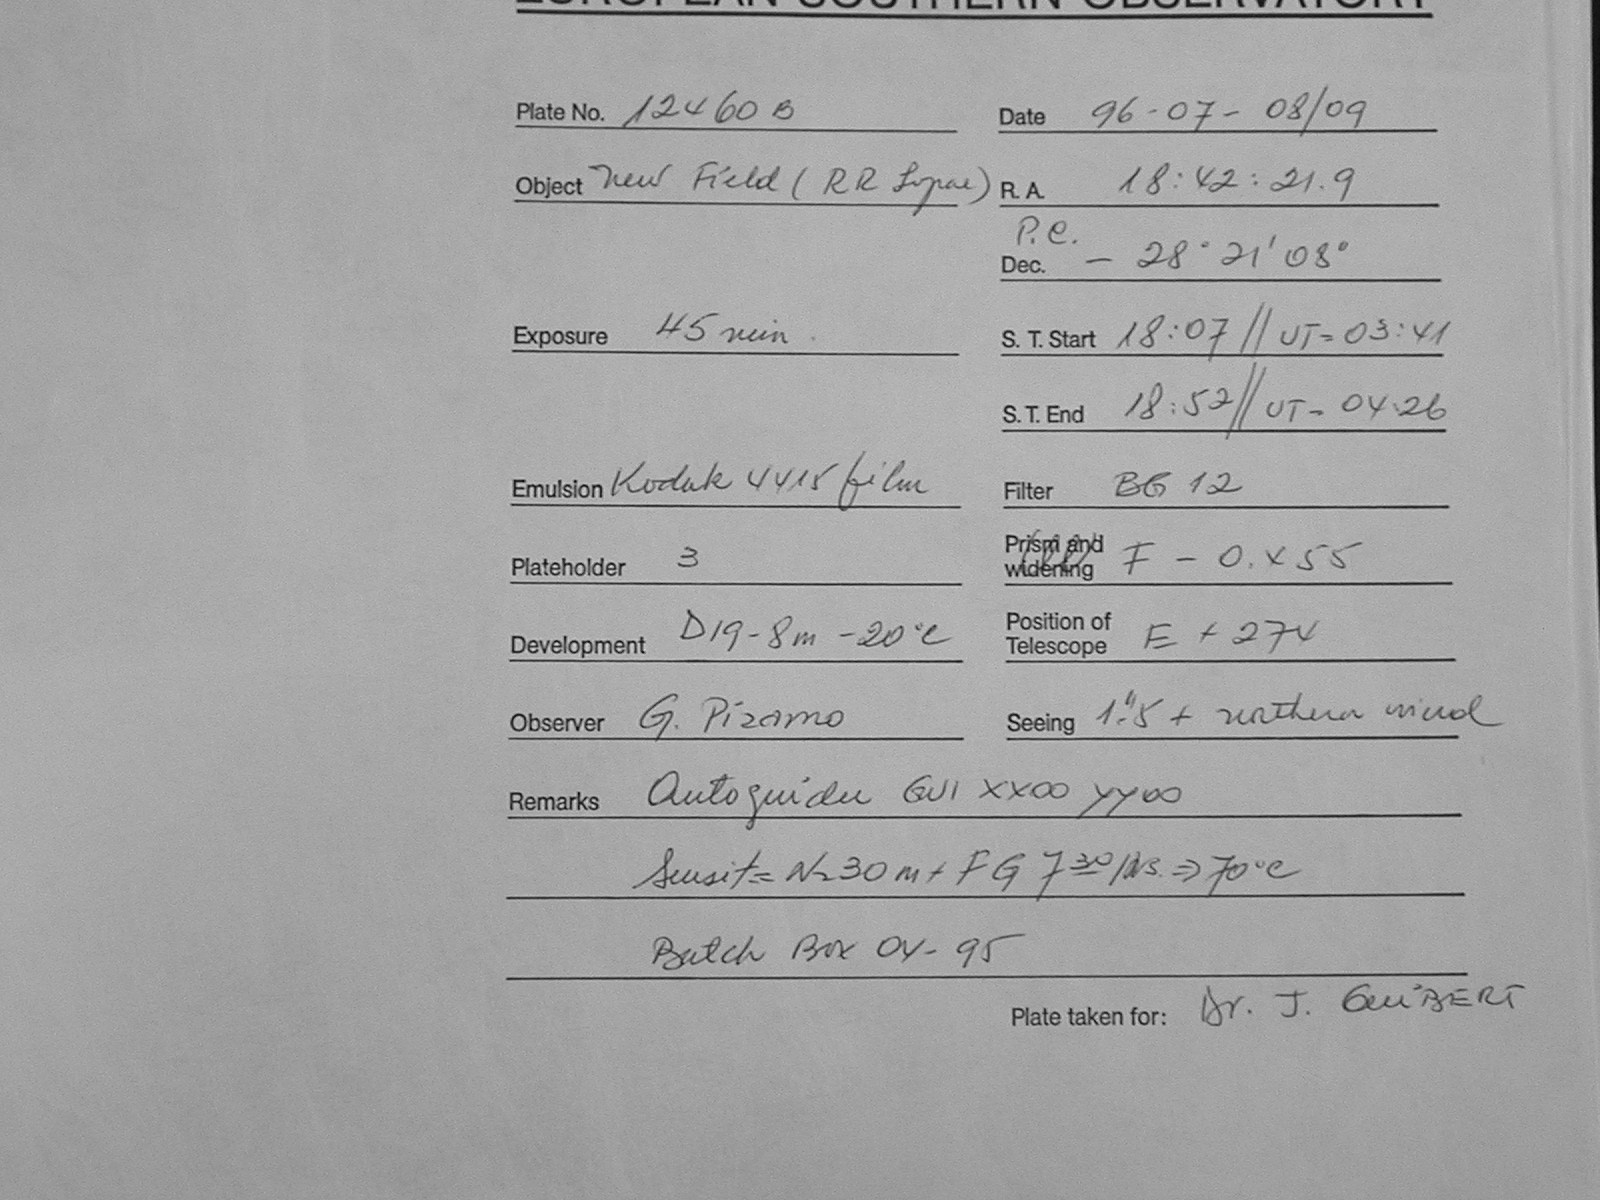 EUROPEAN SOUTHERN OBSERVATORY
Plate No. 12460 B Date 96-07-08/09
Object New Field (RR Lyrae) R. A. 18:42:21.9
P.C.
Dec. - 28° 21' 08°
Exposure 45 min. S. T. Start 18:07 // UT= 03:41
S. T. End 18:52 // UT= 04:26
Emulsion Kodak 4415 film Filter BG 12
Plateholder 3 Prism and widening F - 0.x55
Development D19-8m -20°C Position of Telescope E + 274
Observer G. Pizarro Seeing 1."5 + northern wind
Remarks Autoguider GUI XX00 YY00
Sensit= N2 30 m + FG 7 30/ ⇒ 70°C
Batch Box 04-95
Plate taken for: Dr. J. GUIBERT